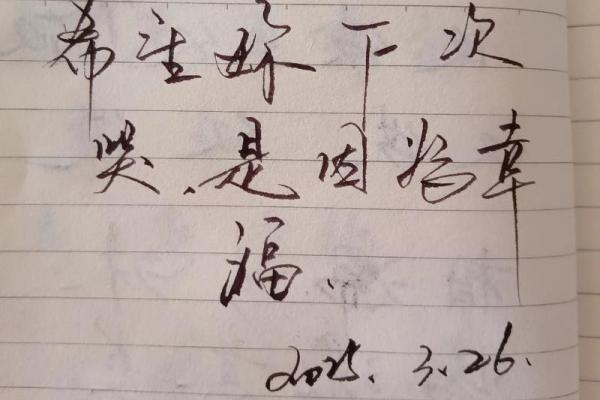 希望妳下次
哭,是因为幸
福.
2025.3.26.